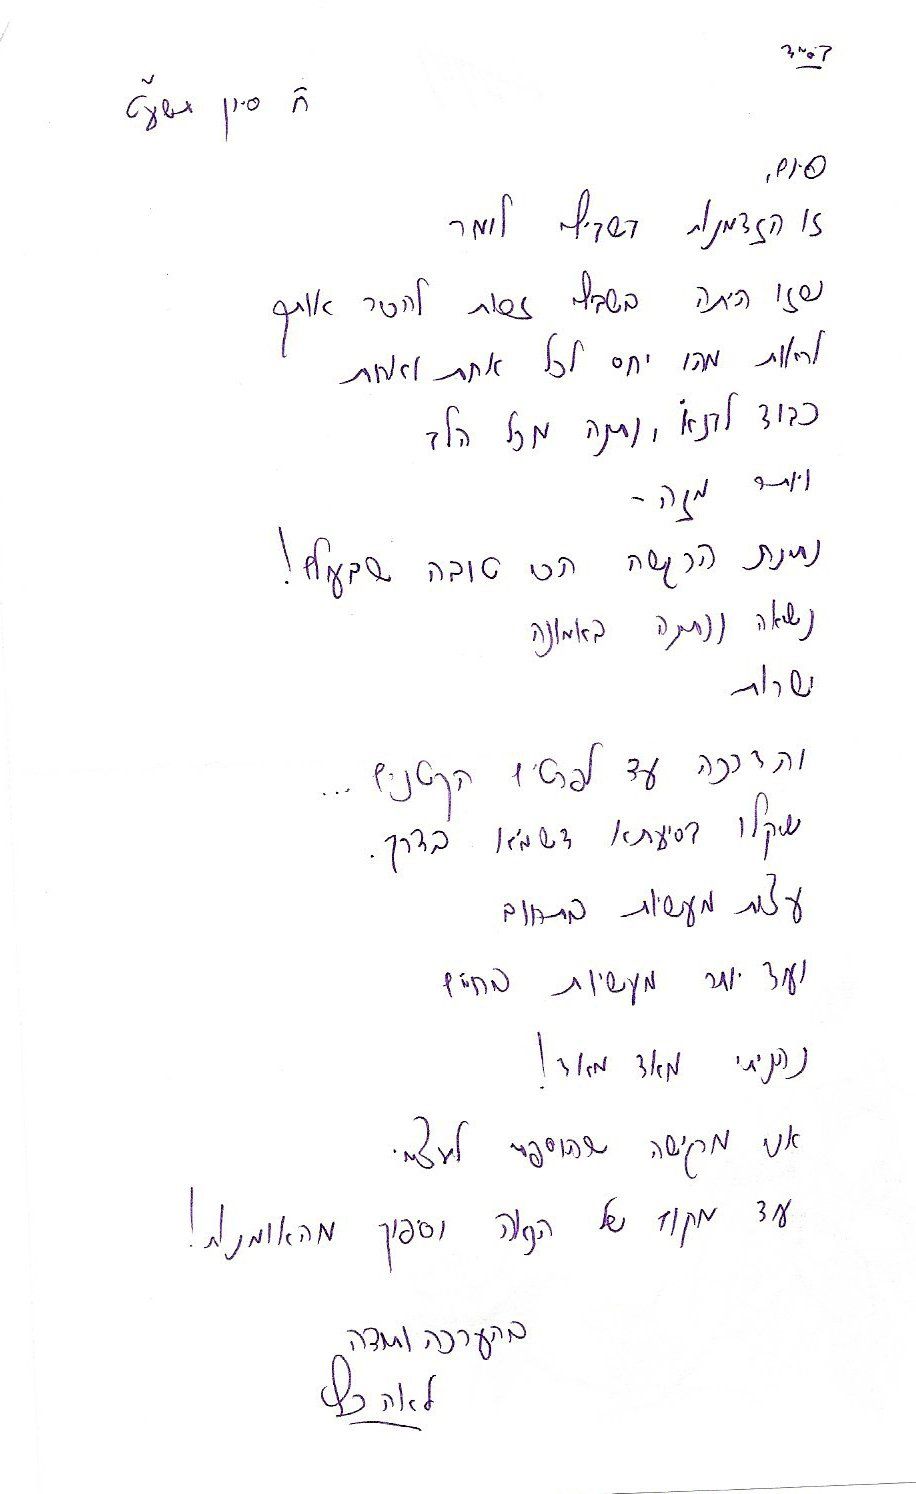 בסיד
ח' סיון תשע"ט
סיום,
זו הזדמנות בשבילי לומר
שזו היתה בשבילי זכות להכיר אותך
לראות מהו יחס לכל אחת ואחת
כבוד לבנא', נתינה מכל הלב
ויותר מזה -
נתינת הרגשה הכי טובה שבעולם!
נשאה ונתנה באמונה
ישרות
והדרכה עד לפרטים הקטנים...
שקלו בסיעתא דשמיא בדרך.
עצות מעשיות בתחום
ועוד יותר מעשיות בחיים
נהניתי מאד מאד!
אני מרגישה שהוספתי לעצמי
עוד מקור של הנאה וסיפוק מהאומנות!
בהערכה ותודה
לאה